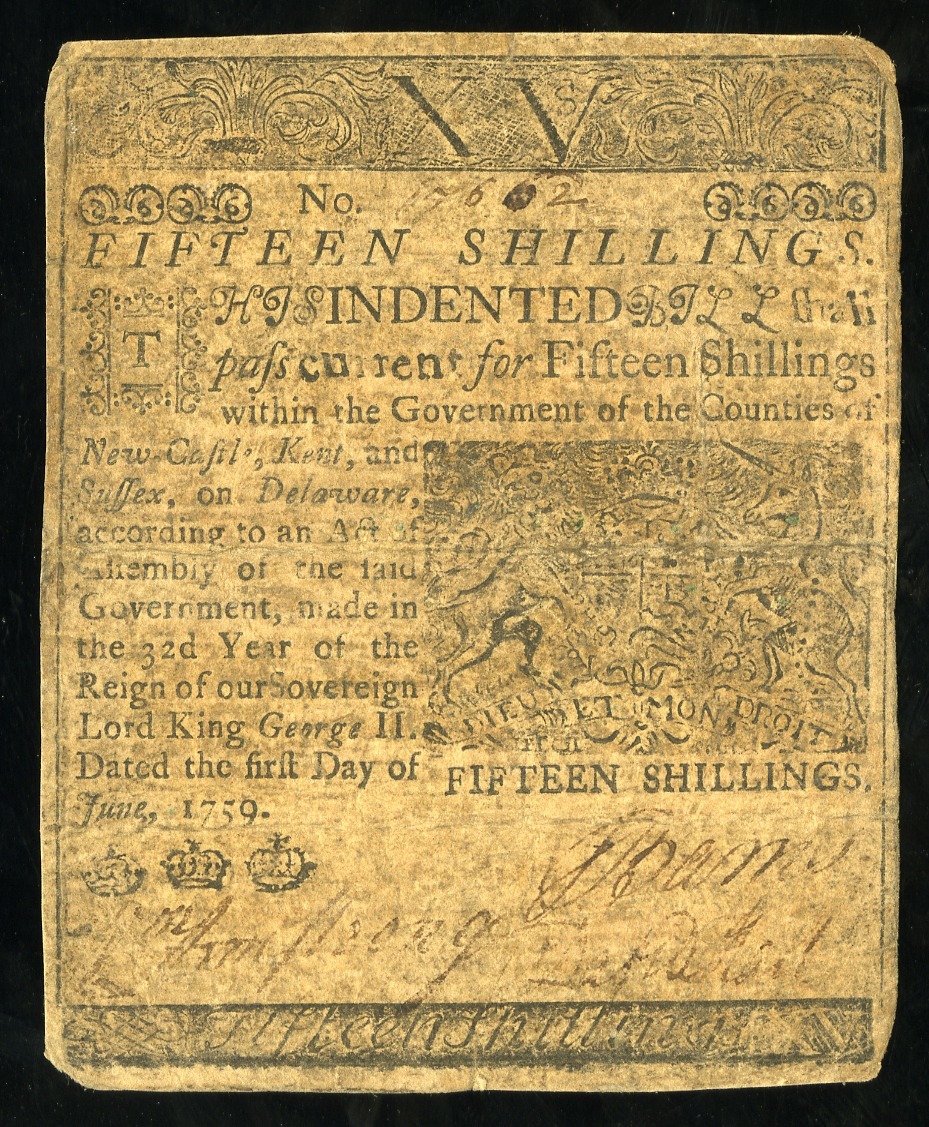 XVs
No. 17662
FIFTEEN SHILLINGS.
THIS INDENTED BILL ſhall
paſs current for Fifteen Shillings
within the Government of the Counties of
New-Caſtle, Kent, and
Suſſex, on Delaware,
according to an Act of
Aſſembly of the ſaid
Government, made in
the 32d Year of the
Reign of our Sovereign
Lord King George II.
Dated the firſt Day of
June, 1759.
DIEU ET MON DROIT
FIFTEEN SHILLINGS.
J Barnes
Wm Armstrong
Fifteen Shillings